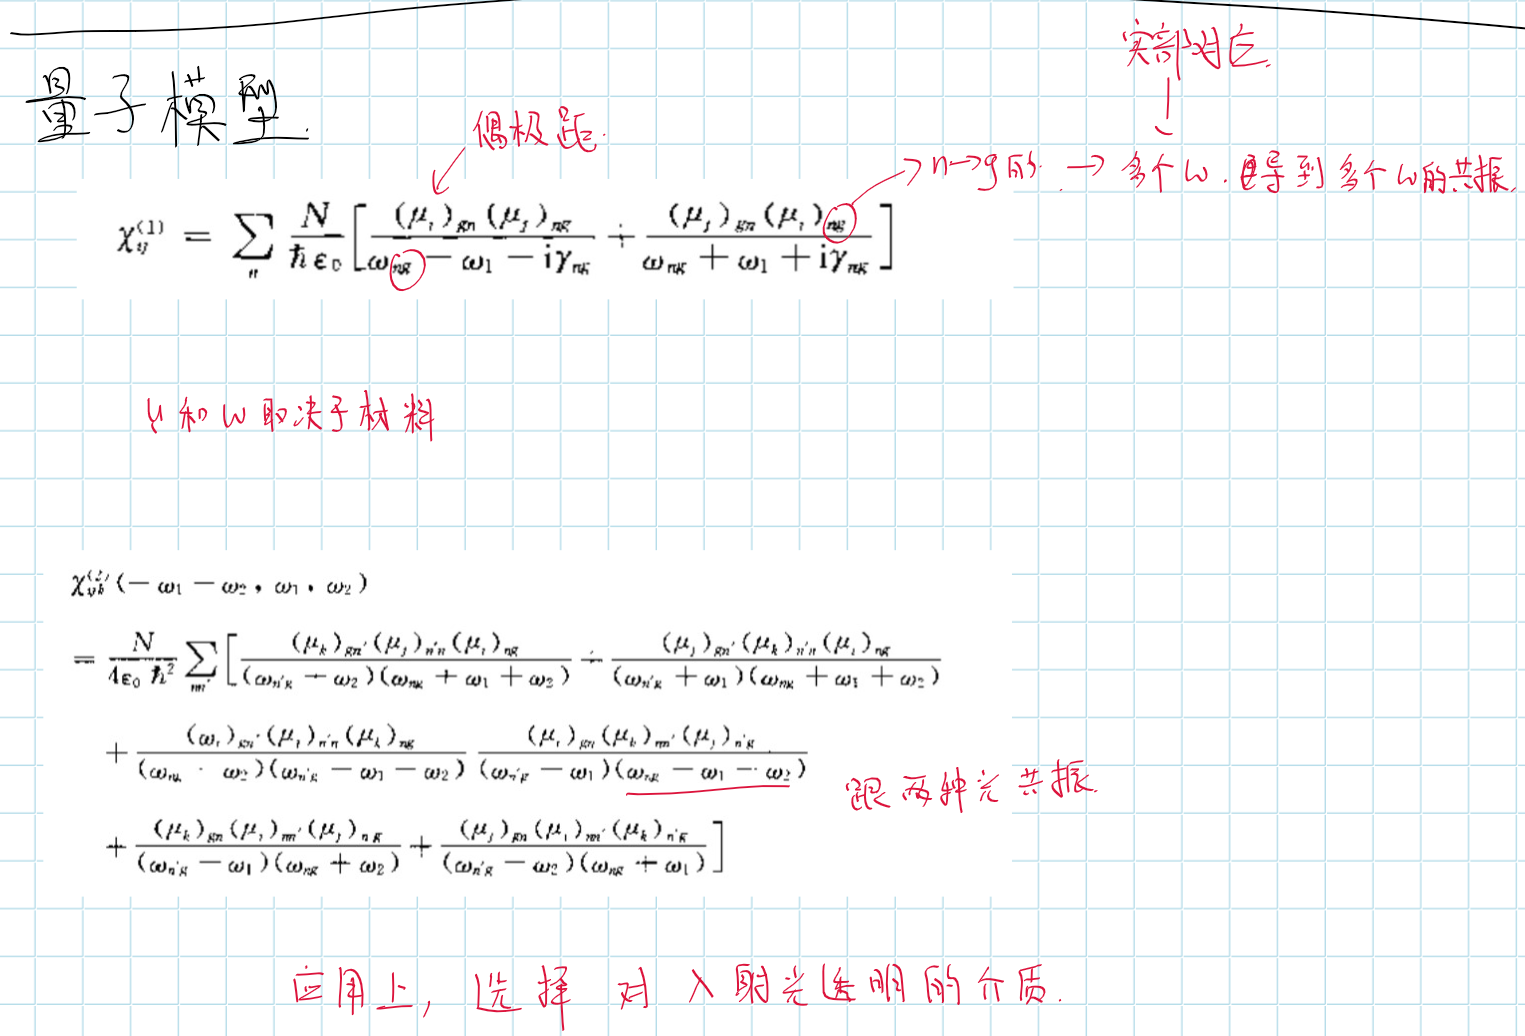 实部对应
量子模型.
偶极距.
→ n→g 的. → 多个 ω. 导到多个 ω 的共振.
χ_{ij}^{(1)} = ∑_n N/(ħε₀) [ (μ_i)_{gn}(μ_j)_{ng}/(ω_{ng} − ω₁ − iγ_{ng}) + (μ_j)_{gn}(μ_i)_{ng}/(ω_{ng} + ω₁ + iγ_{ng}) ]
μ 和 ω 取决于材料
χ_{ijk}^{(2)}(− ω₁ − ω₂, ω₁, ω₂)
= N/(4ε₀ħ²) ∑_{nn′} [ (μ_k)_{gn′}(μ_j)_{n′n}(μ_i)_{ng}/((ω_{n′g} + ω₂)(ω_{ng} + ω₁ + ω₂)) + (μ_j)_{gn′}(μ_k)_{n′n}(μ_i)_{ng}/((ω_{n′g} + ω₁)(ω_{ng} + ω₁ + ω₂))
+ (ω_i)_{gn′}(μ_j)_{n′n}(μ_k)_{ng}/((ω_{ng} − ω₂)(ω_{n′g} − ω₁ − ω₂)) (μ_i)_{gn}(μ_k)_{nn′}(μ_j)_{n′g}/((ω_{n′g} − ω₁)(ω_{ng} − ω₁ − ω₂))
跟两种光共振.
+ (μ_k)_{gn}(μ_i)_{nn′}(μ_j)_{n′g}/((ω_{n′g} − ω₁)(ω_{ng} + ω₂)) + (μ_j)_{gn}(μ_i)_{nn′}(μ_k)_{n′g}/((ω_{n′g} − ω₂)(ω_{ng} + ω₁)) ]
应用上, 选择 对 入射光透明的介质.